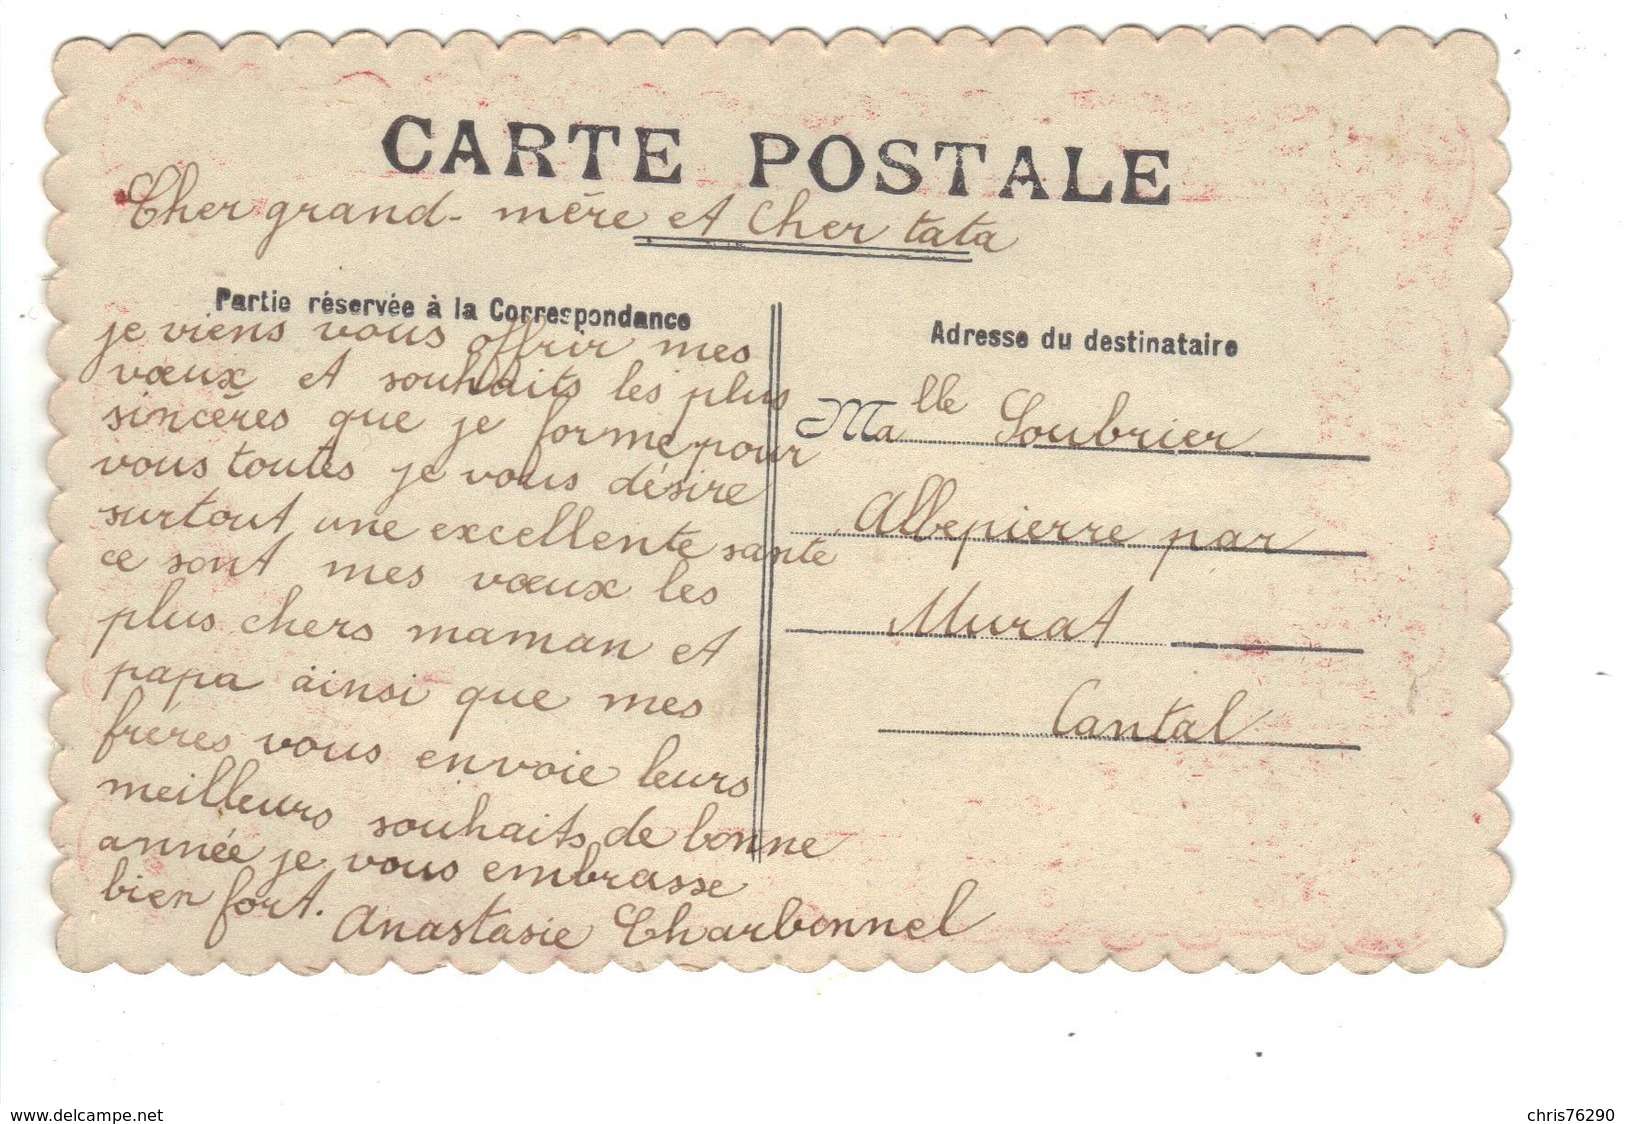 CARTE POSTALE
Cher grand-mère et cher tata
Partie réservée à la Correspondance
je viens vous offrir mes
vœux et souhaits les plus
sincères que je forme pour
vous toutes je vous désire
surtout une excellente sante
ce sont mes vœux les
plus chers maman et
papa ainsi que mes
freres vous envoie leurs
meilleurs souhaits de bonne
année je vous embrasse
bien fort. Anastasie Charbonnel
Adresse du destinataire
Malle Soubrier
Albepierre par
Murat
Cantal
www.delcampe.net
chris76290